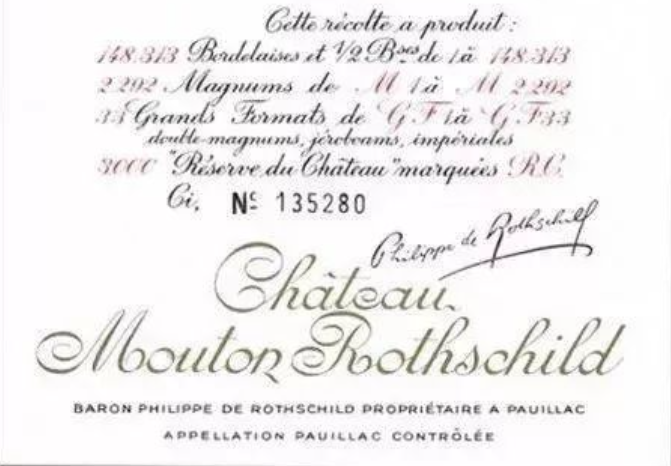 Cette récolte a produit :
148.313 Bordelaises et 1/2 Bses de 1 à 148.313
2.292 Magnums de M 1 à M 2.292
33 Grands Formats de G F 1 à G F 33
double-magnums, jéroboams, impériales
3000 "Réserve du Château" marquées R.C.
Ci, Nº 135280
Philippe de Rothschild
Château
Mouton Rothschild
BARON PHILIPPE DE ROTHSCHILD PROPRIÉTAIRE A PAUILLAC
APPELLATION PAUILLAC CONTRÔLÉE